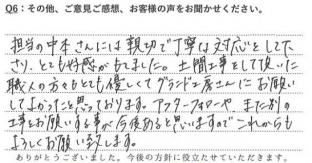 Q6：その他、ご意見ご感想、お客様の声をお聞かせください。
担当の中本さんには親切で丁寧な対応をして下
さり、とても好感がもてました。土間工事をして頂いた
職人の方々もとても優しくてグランド工房さんにお願い
してよかったと思っております。アフターフォローや、また別の
工事をお願いする事が今後あると思いますのでこれからも
よろしくお願い致します。
ありがとうございました。今後の方針に役立たせていただきます。